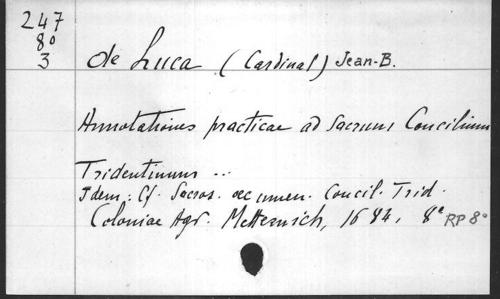 247
8°
3
de Luca (Cardinal) Jean-B.
Annotationes practicae ad sacrum Concilium
Tridentinum ...
Idem: Cf. Sacros. oecumen. Concil. Trid.
Coloniae Agr. Metternich, 1684, 8° RP 8°